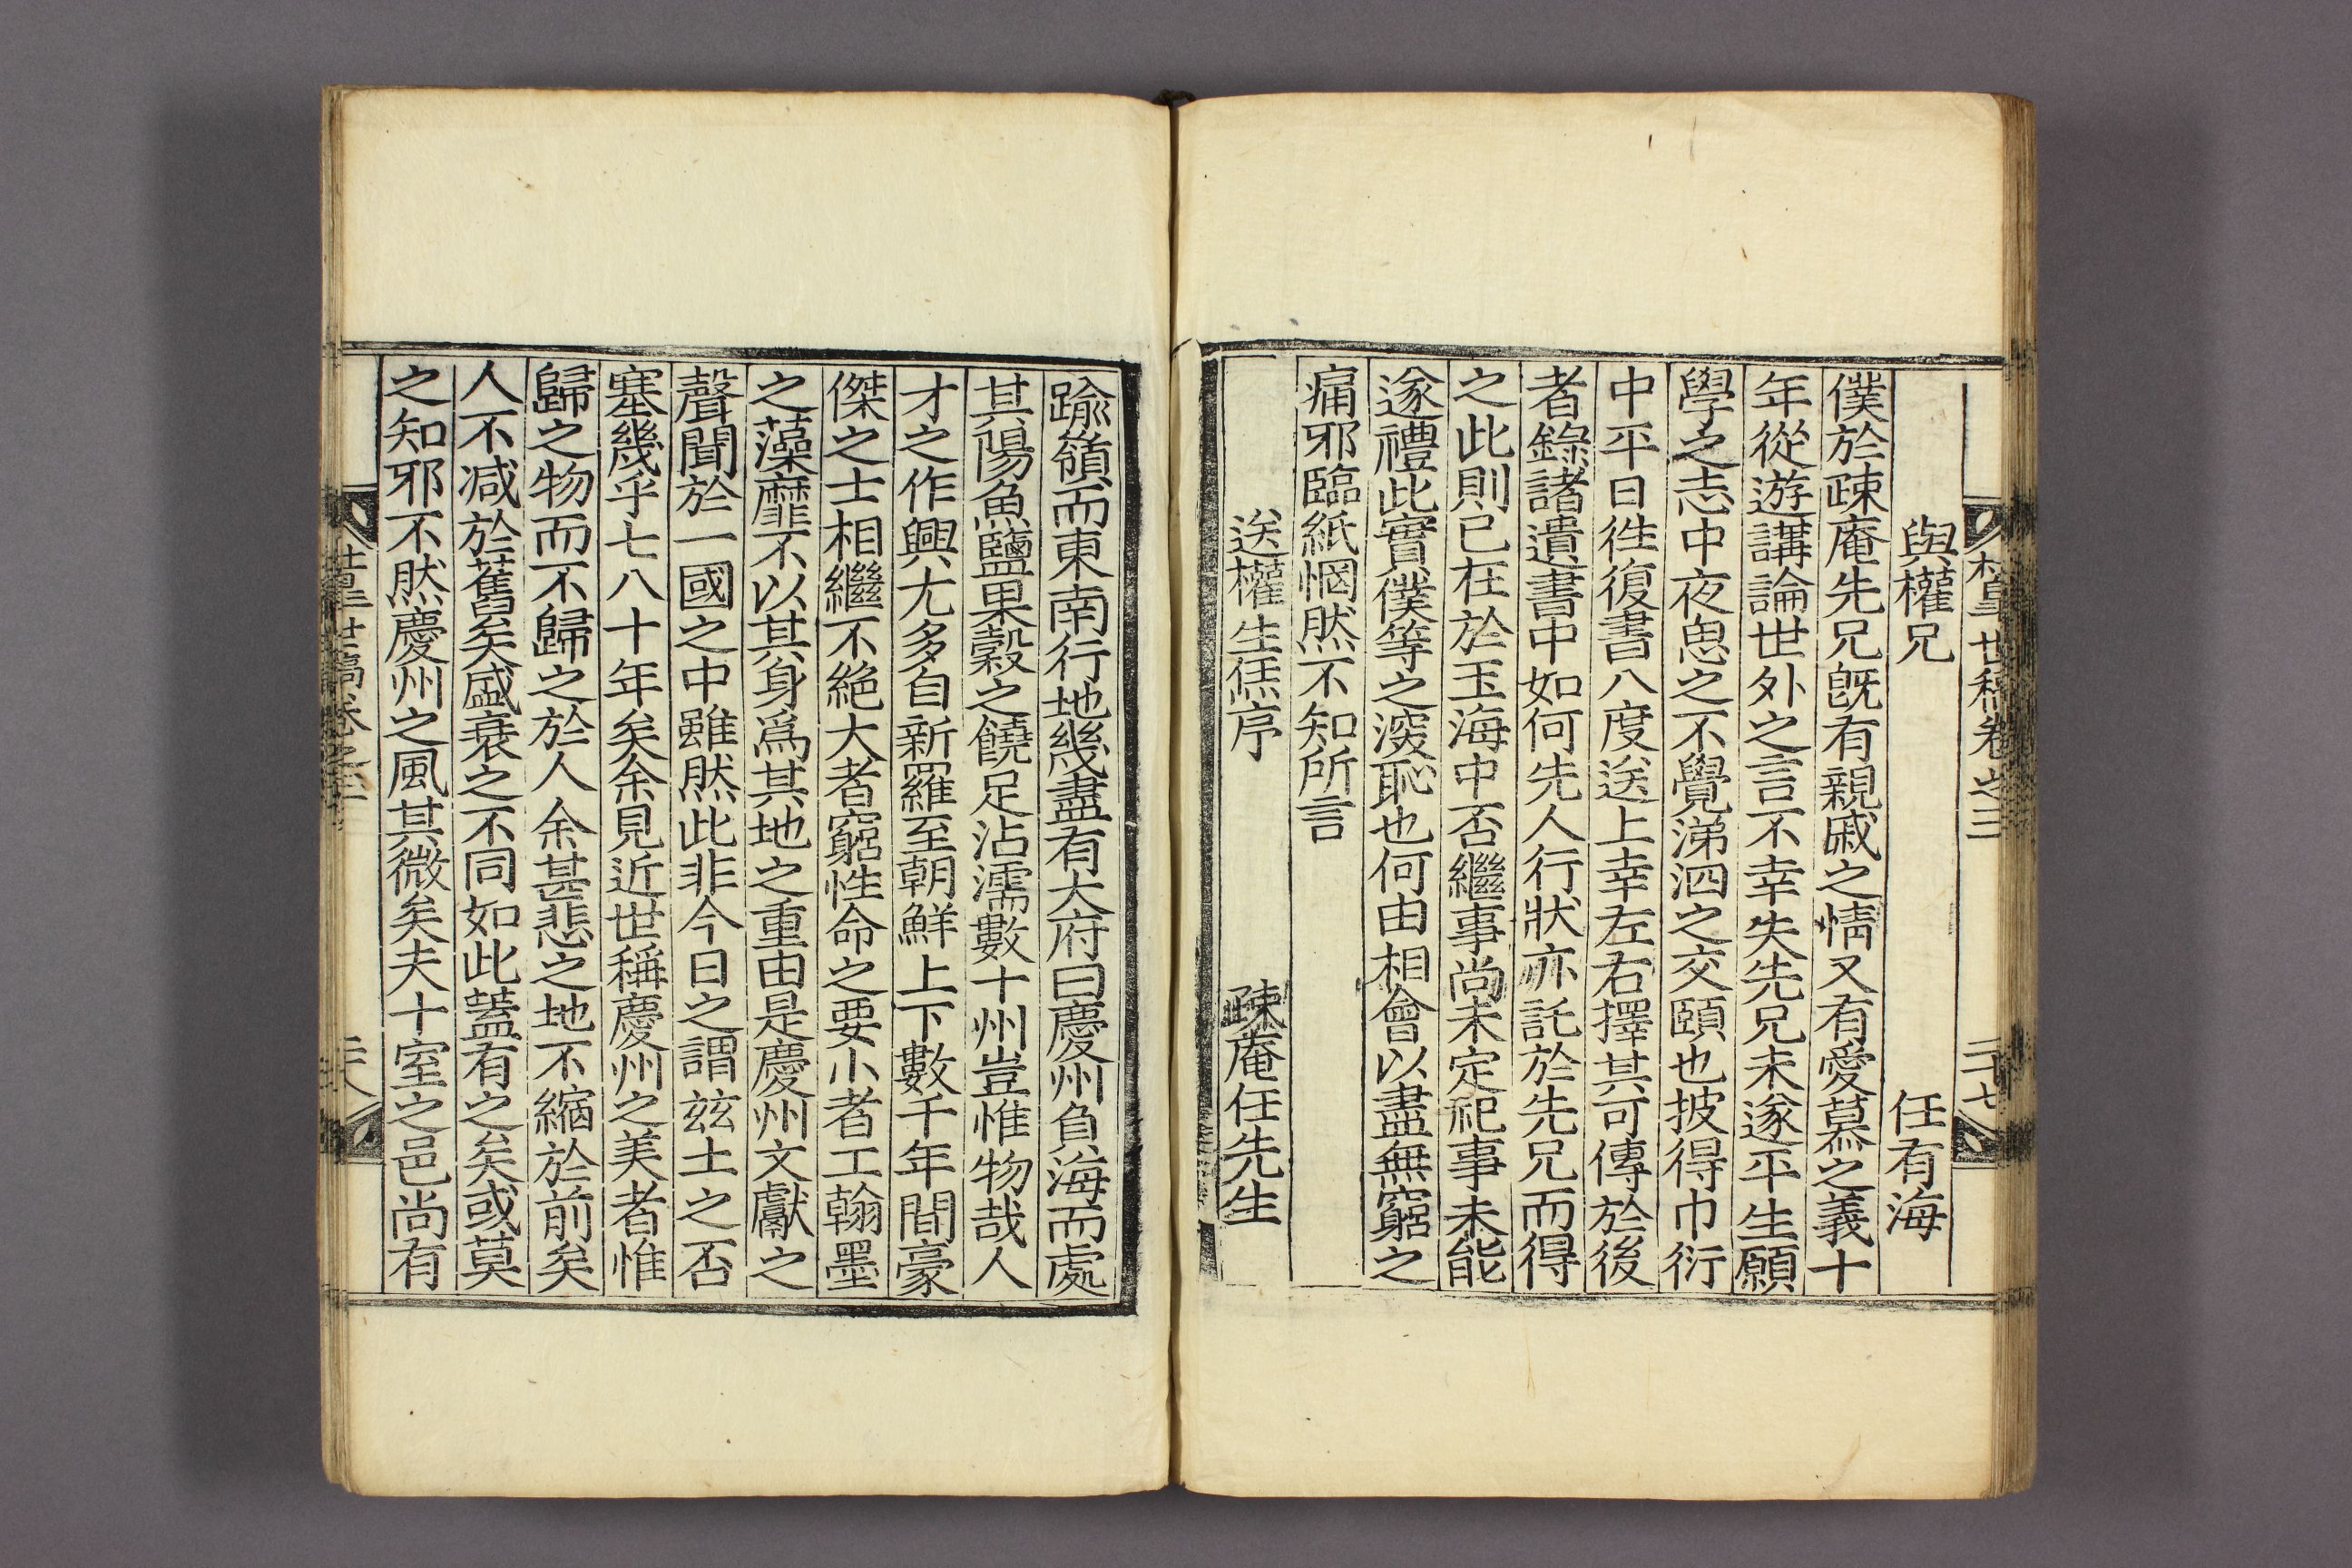 世稿卷之三 二十七
與權兄 任有海
僕於疎庵先兄旣有親戚之情又有愛慕之義十
年從遊講論世外之言不幸失先兄未遂平生願
學之志中夜思之不覺涕泗之交頤也披得巾衍
中平日徃復書八度送上幸左右擇其可傳於後
者錄諸遺書中如何先人行狀亦託於先兄而得
之此則已在於玉海中否繼事尚未定祀事未能
遂禮此實僕等之深恥也何由相會以盡無窮之
痛邪臨紙惘然不知所言
送權生恁序 疎菴任先生
踰嶺而東南行地幾盡有大府曰慶州負海而處
其陽魚鹽果穀之饒足沾濡數十州豈惟物哉人
才之作興尤多自新羅至朝鮮上下數千年間豪
傑之士相繼不絶大者窮性命之要小者工翰墨
之藻靡不以其身爲其地之重由是慶州文獻之
聲聞於一國之中雖然此非今日之謂玆土之否
塞幾乎七八十年矣余見近世稱慶州之美者惟
歸之物而不歸之於人余甚悲之地不縮於前矣
人不减於舊矣盛衰之不同如此蓋有之矣或莫
之知邪不然慶州之風其微矣夫十室之邑尚有
世稿卷之三 二十八